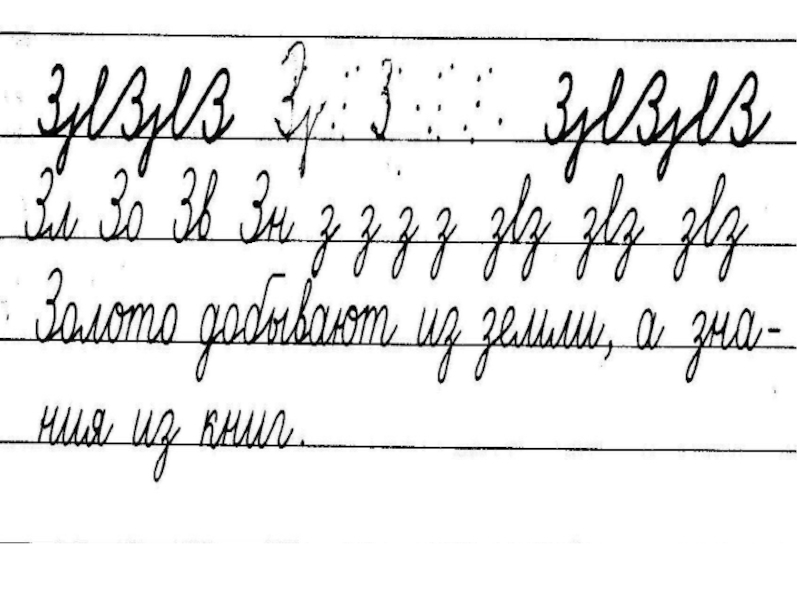 ЗзlВзlВ Зз З ЗзlВзlВ
Зл Зо Зв Зн з з з з зlз зlз зlз
Золото добывают из земли, а зна-
ния из книг.